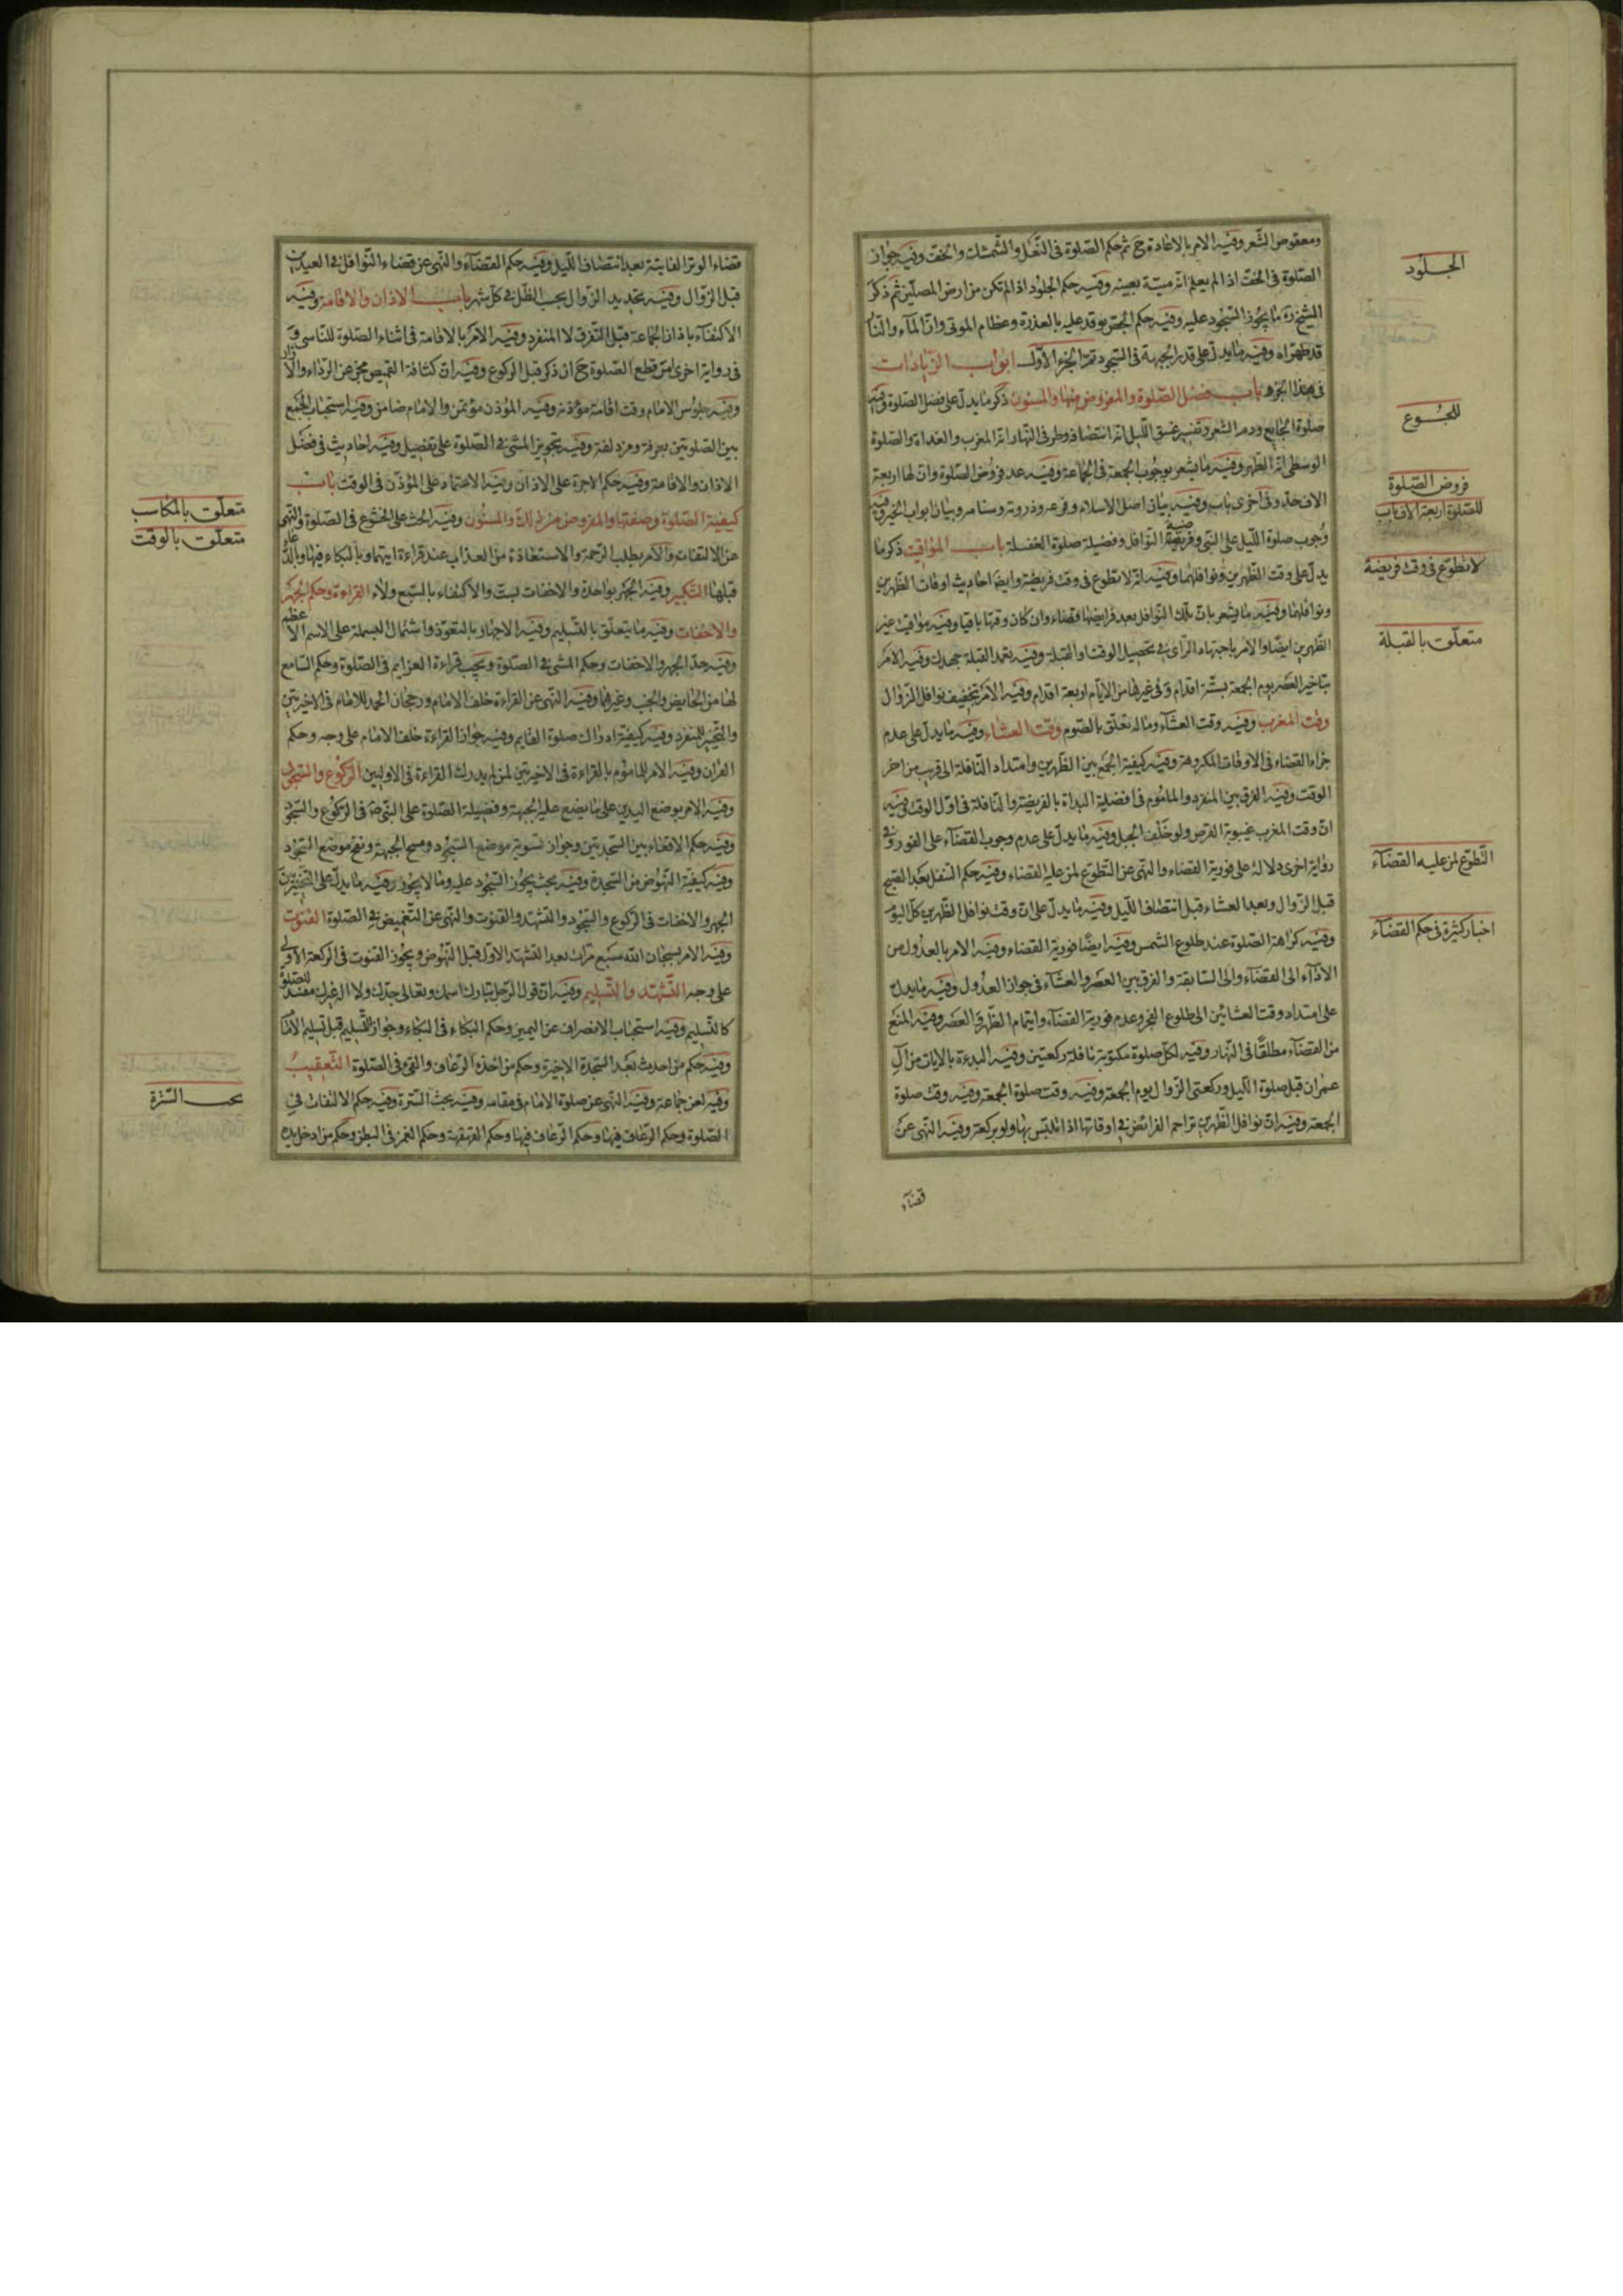 ومعقوص الشّعر وفيه الامر بالاعادة ح ثم حكم الصّلوة فى النّعل والشّمشك والخفّ وفيه جواز
الصّلوة فى الخفّ اذا لم يعلم انّه ميتة بعينه وفيه حكم الجلود اذا لم تكن من ارض المصلّين ثمّ ذكر
الشيخ ره ما يجوز السّجود عليه وفيه حكم الجصّ يوقد عليه بالعذرة وعظام الموتى وانّ الماء والنّار
قد طهّراه وفيه ما يدلّ على قدر الجبهة فى السّجود تمّ الجزء الاوّل ابواب الزّيادات
فى هذا الجزء باب فضل الصّلوة والمفروض منها والمسنون ذكر ما يدلّ على فضل الصّلوة وفيه
صلوة الجايع وذم الشعر وتفسير غسق اللّيل انّه انتصافه وطرفى النّهار انّه المغرب والغداة والصّلوة
الوسطى انّه الظّهر وفيه ما يشعر بوجوب الجمعة فى الجماعة وفيه عدد فروض الصّلوة وانّ لها اربعة
الاف حدّ وفى اخرى باب وفيه بيان اصل الاسلام وفرعه وذروته وسنامه وبيان ابواب الخير وفيه
وجوب صلوة اللّيل على النّبى وفريضة النّوافل وفضيلة صلوة الغفلة باب المواقيت ذكر ما
يدلّ على وقت الظّهرين ونوافلهما وفيه انّه لا تطوّع فى وقت فريضة وايضا احاديث اوقات الظّهرين
ونوافلهما وفيه ما يشعر بانّ تلك النّوافل بعد فرايضها قضاء وان كان وقتها باقيا وفيه مواقيت غير
الظّهرين ايضا والامر باجتهاد الرّاى فى تحصيل الوقت والقبلة وفيه تعمد القبلة جهدك وفيه الامر
بتاخير العصر يوم الجمعة بستّة اقدام وفى غيرها من الايّام اربعة اقدام وفيه الامر بتخفيف نوافل الزّوال
وقت المغرب وفيه وقت العشاء وما له تعلّق بالصّوم وقت العشاء وفيه ما يدلّ على عدم
جزاء القضاء فى الاوقات المكروهة وفيه كيفية الجمع بين الظّهرين وامتداد النّافلة الى قريب من اخر
الوقت وفيه الفرق بين المنفرد والماموم فى افضلية البداة بالفريضة والنّافلة فى اوّل الوقت وفيه
انّ وقت المغرب غيبوبة القرص ولو خلف الجبل وفيه ما يدلّ على عدم وجوب القضاء على الفور وفى
رواية اخرى دلالة على فورية القضاء والنّهى عن التّطوّع لمن عليه القضاء وفيه حكم التنفل بعد الصّبح
قبل الزّوال وبعد العشاء قبل انتصاف اللّيل وفيه ما يدلّ على انّ وقت نوافل الظّهرين كلّ اليوم
وفيه كراهة الصّلوة عند طلوع الشمس وفيه ايضًا فورية القضاء وفيه الامر بالعدول من
الاداء الى القضاء والى السّابقة والفرق بين العصر والعشاء فى جواز العدول وفيه ما يدلّ
على امتداد وقت العشائين الى طلوع الفجر وعدم فورية القضاء وايتمام الظّهر فى العصر وفيه المنع
من القضاء مطلقًا فى النّهار وفيه لكلّ صلوة مكتوبة نافلة ركعتين وفيه البدءة بالايات من ال
عمران قبل صلوة اللّيل وركعتى الزّوال يوم الجمعة وفيه وقت صلوة الجمعة وفيه وقت صلوة
الجمعة وفيه انّ نوافل الظّهرين تزاحم الفرائض فى اوقاتها اذا تلبّس بها ولو بركعة وفيه النّهى عن
قضاء
الجلود
للجوع
فروض الصّلوة
للصّلوة اربعة الاف باب
لا تطوّع فى وقت فريضة
متعلّق بالقبلة
التّطوّع لمن عليه القضاء
اخبار كثيرة فى حكم القضاء
قضاء الوتر الفايتة بعد انتصاف اللّيل وفيه حكم القضاء والنّهى عن قضاء النّوافل فى العيدين
قبل الزّوال وفيه تحديد الزّوال بحسب الظّل فى كلّ شهر باب الاذان والاقامة وفيه
الاكتفاء باذان الجماعة قبل التّفرق لا المنفرد وفيه الامر بالاقامة فى اثناء الصّلوة للنّاسى و
فى رواية اخرى امر قطع الصّلوة ح ان ذكر قبل الركوع وفيه انّ كثافة القميص مجز عن الرّداء والازار
وفيه جلوس الامام وقت اقامة مؤذنه وفيه المؤذن مؤتمن والامام ضامن وفيه استحباب الجمع
بين الصلوتين بعرفة ومزدلفة وفيه تجويز المشى فى الصّلوة على تفصيل وفيه احاديث فى فضل
الاذان والاقامة وفيه حكم الاجرة على الاذان وفيه الاعتماد على المؤذّن فى الوقت باب
كيفية الصّلوة وصفتها والمفروض من ذلك والمسنون وفيه الحث على الخشوع فى الصّلوة والنّهى
عن الالتفات والامر بطلب الرّحمة والاستعاذة من العذاب عند قراءة ايتهما وبالبكاء فيها وبالدعاء
قبلها التكبير وفيه الجهر بواحدة والاخفات بستّ والاكتفاء بالسّبع ولاء القراءة وحكم الجهر
والاخفات وفيه ما يتعلّق بالتّسليم وفيه الاجهار بالتعوّذ واشتمال البسملة على الاسم الاعظم
وفيه حدّ الجهر والاخفات وحكم المشى فى الصّلوة وفيه قراءة العزايم فى الصّلوة وحكم السّامع
لها من الحايض والجنب وغيرهما وفيه النّهى عن القراءة خلف الامام ورجحان الحمد للامام فى الاخيرتين
والتخيّر للمنفرد وفيه كيفية ادراك صلوة القايم وفيه جواز القراءة خلف الامام على وجه وحكم
القران وفيه الامر للماموم بالقراءة فى الاخيرتين لمن لم يدرك القراءة فى الاوليين الركوع والسّجود
وفيه الامر بوضع اليدين على ما يضع عليه الجبهة وفضيلة الصّلوة على النّبى ص فى الرّكوع والسّجود
وفيه حكم الاقعاء بين السّجدتين وجواز تسوية موضع السّجود ومسح الجبهة ونفخ موضع السّجود
وفيه كيفية النّهوض من السّجدة وفيه بحث يجوز السّجود عليه وما لا يجوز وفيه ما يدلّ على التخيير بين
الجهر والاخفات فى الرّكوع والسّجود والتشهّد والقنوت والنّهى عن التّغميض فى الصّلوة القنوت
وفيه الامر بسبحان الله سبع مرّات بعد التشهّد الاوّل قبل النّهوض ويجوز القنوت فى الركعة الاولى
على وجه التّشهّد والتّسليم وفيه انّ قول الرّجل تبارك اسمك وتعالى جدّك ولا اله غيرك مفسد للصلوة
كالتّسليم وفيه استحباب الانصراف عن اليمين وحكم البكاء فى البكاء وجواز التّسليم قبل تسليم الامام
وفيه حكم من احدث بعد السّجدة الاخيرة وحكم من اخذه الرّعاف والقىء فى الصّلوة التّعقيب
وفيه لعن جماعة وفيه النّهى عن صلوة الامام فى مقامه وفيه بحث السّترة وفيه حكم الالتفات فى
الصّلوة وحكم الرّعاف فيها وحكم القهقهة وحكم الغمز فى البطن وحكم من ادخل يده
متعلّق بالمكاسب
متعلّق بالوقت
بحث السّترة